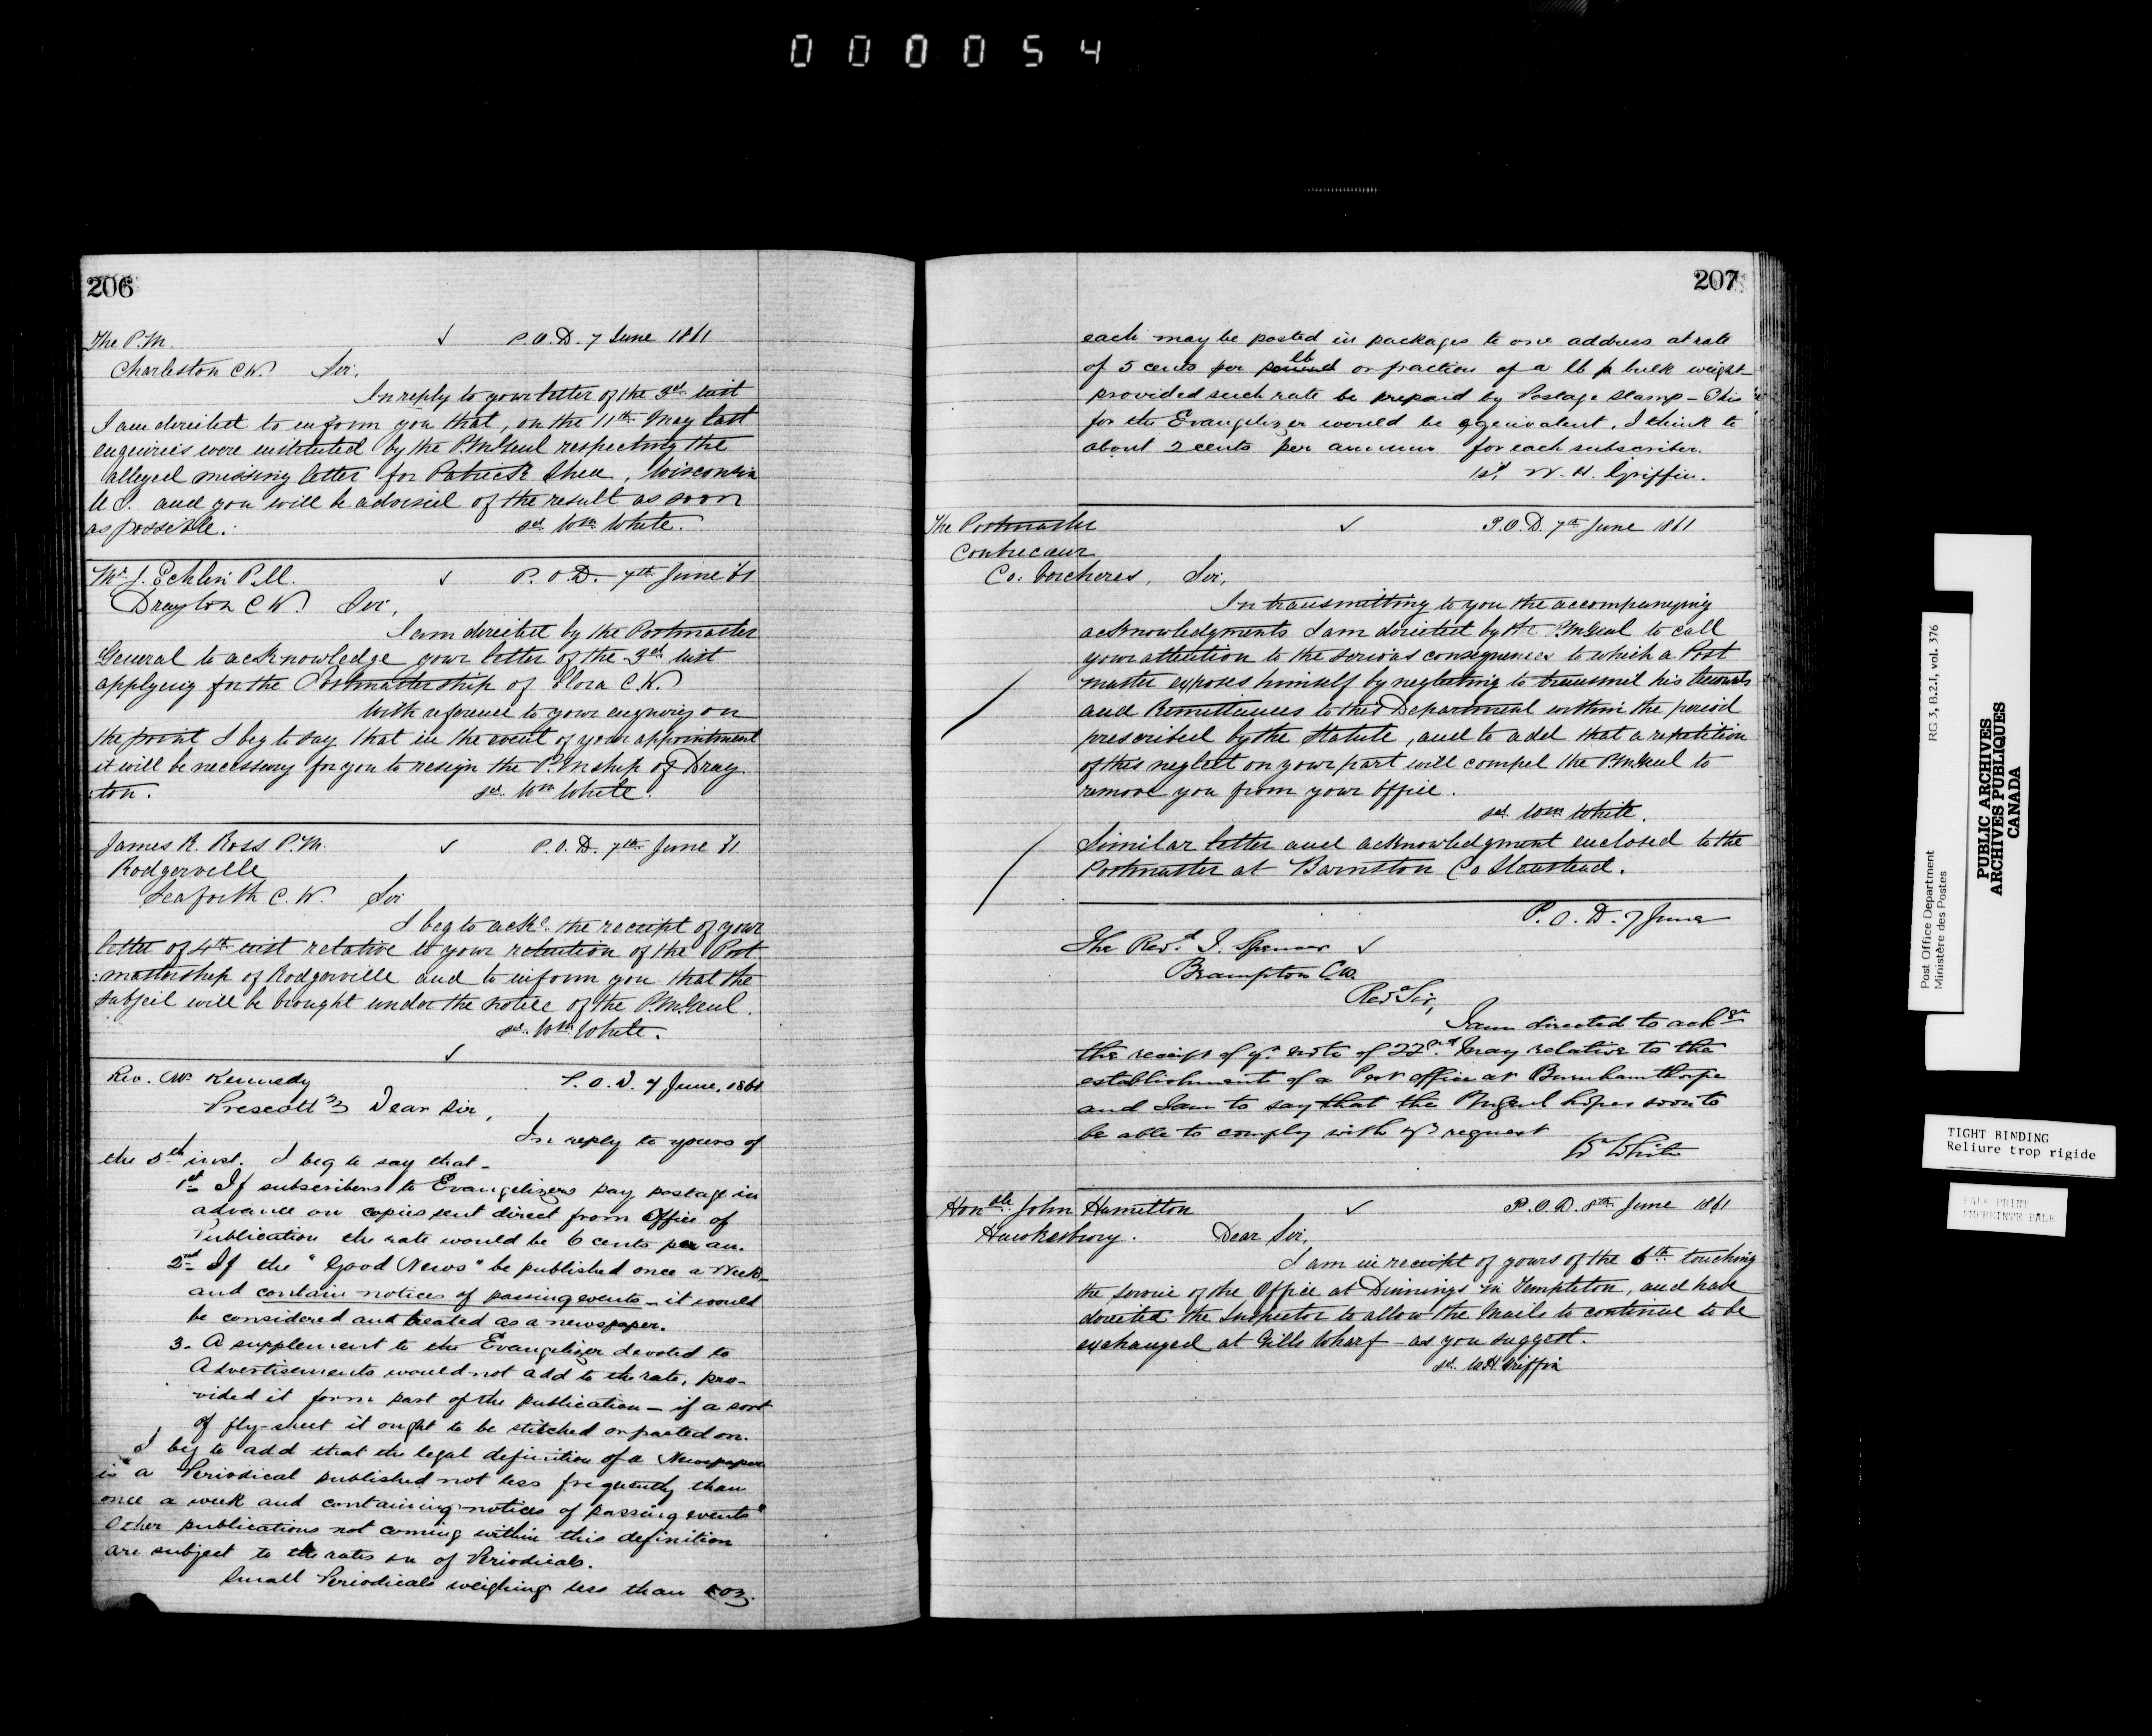 000054
206
The P.M. ✓ P.O.D. 7 June 1861
Charleston C.W. Sir,
In reply to your letter of the 3rd inst
I am directed to inform you that, on the 11th May last
enquiries were instituted by the P.M.Genl respecting the
alleged missing letter for Patrick Shea, Wisconsin
U.S. and you will be advised of the result as soon
as possible. sd. Wm White.
Mr J. Echlin P.M. ✓ P.O.D. 7th June 61
Drayton C.W. Sir,
I am directed by the Postmaster
General to acknowledge your letter of the 3rd inst
applying for the Postmastership of Elora C.W.
With reference to your enquiry on
the point I beg to say that in the event of your appointment
it will be necessary for you to resign the P.Mship of Dray
:ton. sd. Wm White.
James R. Ross P.M. ✓ P.O.D. 7th June 61
Rodgerville
Seaforth C.W. Sir
I beg to acke. the receipt of your
letter of 4th inst relative to your retention of the Post
:mastership of Rodgerville and to inform you that the
subject will be brought under the notice of the P.M.Genl.
sd. Wm White.
✓
Rev. Wm Kennedy P.O.D. 7 June, 1861
Prescott Dear Sir,
In reply to yours of
the 5th inst. I beg to say that -
1st If subscribers to Evangelizers pay postage in
advance on copies sent direct from Office of
Publication the rate would be 6 cents per an.
2nd If the "Good News" be published once a Week -
and contain notices of passing events - it would
be considered and treated as a newspaper.
3. A supplement to the Evangelizer devoted to
Advertisements would not add to the rate, pro-
vided it form part of the publication - if a sort
of fly-sheet it ought to be stitched or pasted on.
I beg to add that the legal definition of a Newspaper
is "a Periodical published not less frequently than
once a week and containing notices of passing events"
Other publications not coming within this definition
are subject to the rates on of Periodicals.
Small Periodicals weighing less than oz.
207
each may be posted in packages to one address at rate
of 5 cents per pound lb or fraction of a lb p bulk weight -
provided such rate be prepaid by Postage Stamp - This
for the Evangelizer would be equivalent, I think to
about 2 cents per annum for each subscriber.
sd. W. H. Griffin.
The Postmaster ✓ P.O.D. 7th June 1861
Contrecœur
Co: Vercheres, Sir,
In transmitting to you the accompanying
acknowledgments I am directed by the P.M.Genl to call
your attention to the serious consequences to which a Post
master exposes himself by neglecting to transmit his Accounts
and Remittances to this Department within the period
prescribed by the Statute, and to add that a repetition
of this neglect on your part will compel the P.M.Genl to
remove you from your office.
sd. Wm White.
Similar letter and acknowledgment enclosed to the
Postmaster at Barnston Co Stanstead.
P.O.D. 7 June
The Revd. J. Spencer ✓
Brampton C.W.
Revd Sir,
I am directed to ackge
the receipt of yr note of 22nd. May relative to the
establishment of a Post office at Burnhamthorpe
and I am to say that the P.M.Genl hopes soon to
be able to comply with yr request
Wm White
Honble. John Hamilton ✓ P.O.D. 8th June 1861
Hawkesbury. Dear Sir,
I am in receipt of yours of the 6th touching
the service of the Office at Dinnings in Templeton, and have
directed the Inspector to allow the Mails to continue to be
exchanged at Gills Wharf - as you suggest.
sd. W.H. Griffin
Post Office Department RG 3, B.2.I, vol. 376
Ministère des Postes
PUBLIC ARCHIVES
ARCHIVES PUBLIQUES
CANADA
TIGHT BINDING
Reliure trop rigide
PALE PRINT
EMPREINTE PALE